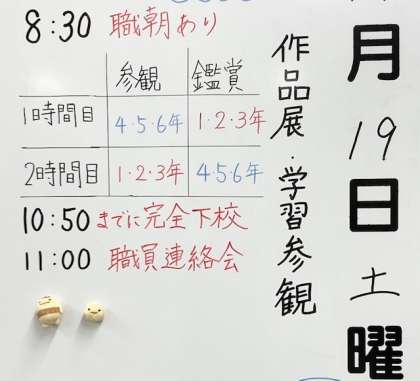 月
19
日
土
曜
作品展・学習参観
8:30 職朝あり
参観 鑑賞
1時間目 4・5・6年 1・2・3年
2時間目 1・2・3年 4・5・6年
10:50 までに完全下校
11:00 職員連絡会